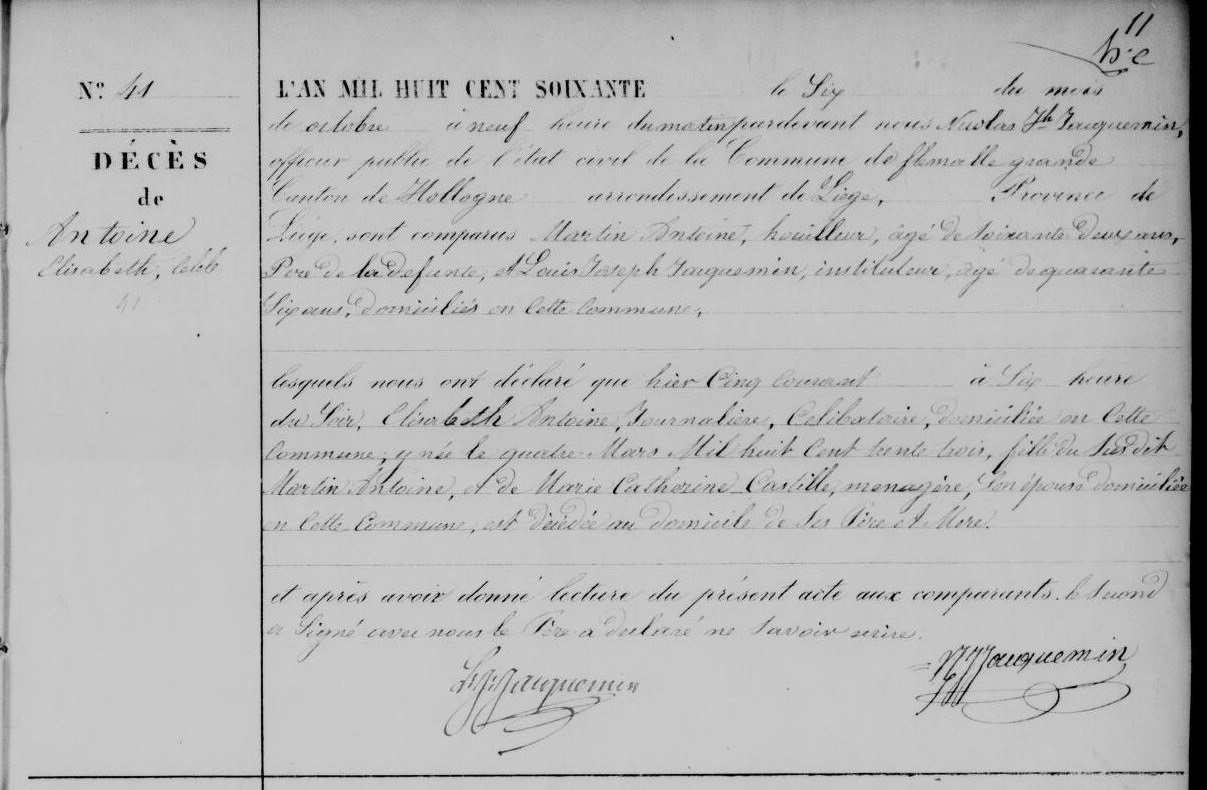 11
Nº 41
DÉCÈS
de
Antoine
Elisabeth, Célib
41
L'AN MIL HUIT CENT SOIXANTE le Six du mois
de octobre à neuf heure du matin pardevant nous Nicolas Jh Jacquemin,
officier public de l'état civil de la Commune de flemalle grande
Canton de Hollogne arrondissement de Liège, Province de
Liége, sont comparus Martin Antoine, houilleur, âgé de Soixante deux ans,
Pere de la defunte, et Louis Joseph Jacquemin, instituteur, âgé de quarante
Six ans, domiciliés en Cette Commune,
lesquels nous ont déclaré que hier Cinq Courant à Six heure
du Soir, Elisabeth Antoine, Journalière, Celibataire, domiciliée en Cette
Commune, y née le quatre Mars Mil huit Cent trente trois, fille du Susdit
Martin Antoine, et de Marie Catherine Castille, menagère, Son épouse domiciliée
en Cette Commune, est décédée au domicile de Ses Père et Mere.
et après avoir donné lecture du présent acte aux comparants. le Second
a Signé avec nous le Père a declaré ne Savoir ecrire.
L. J. Jacquemin
NJJacquemin